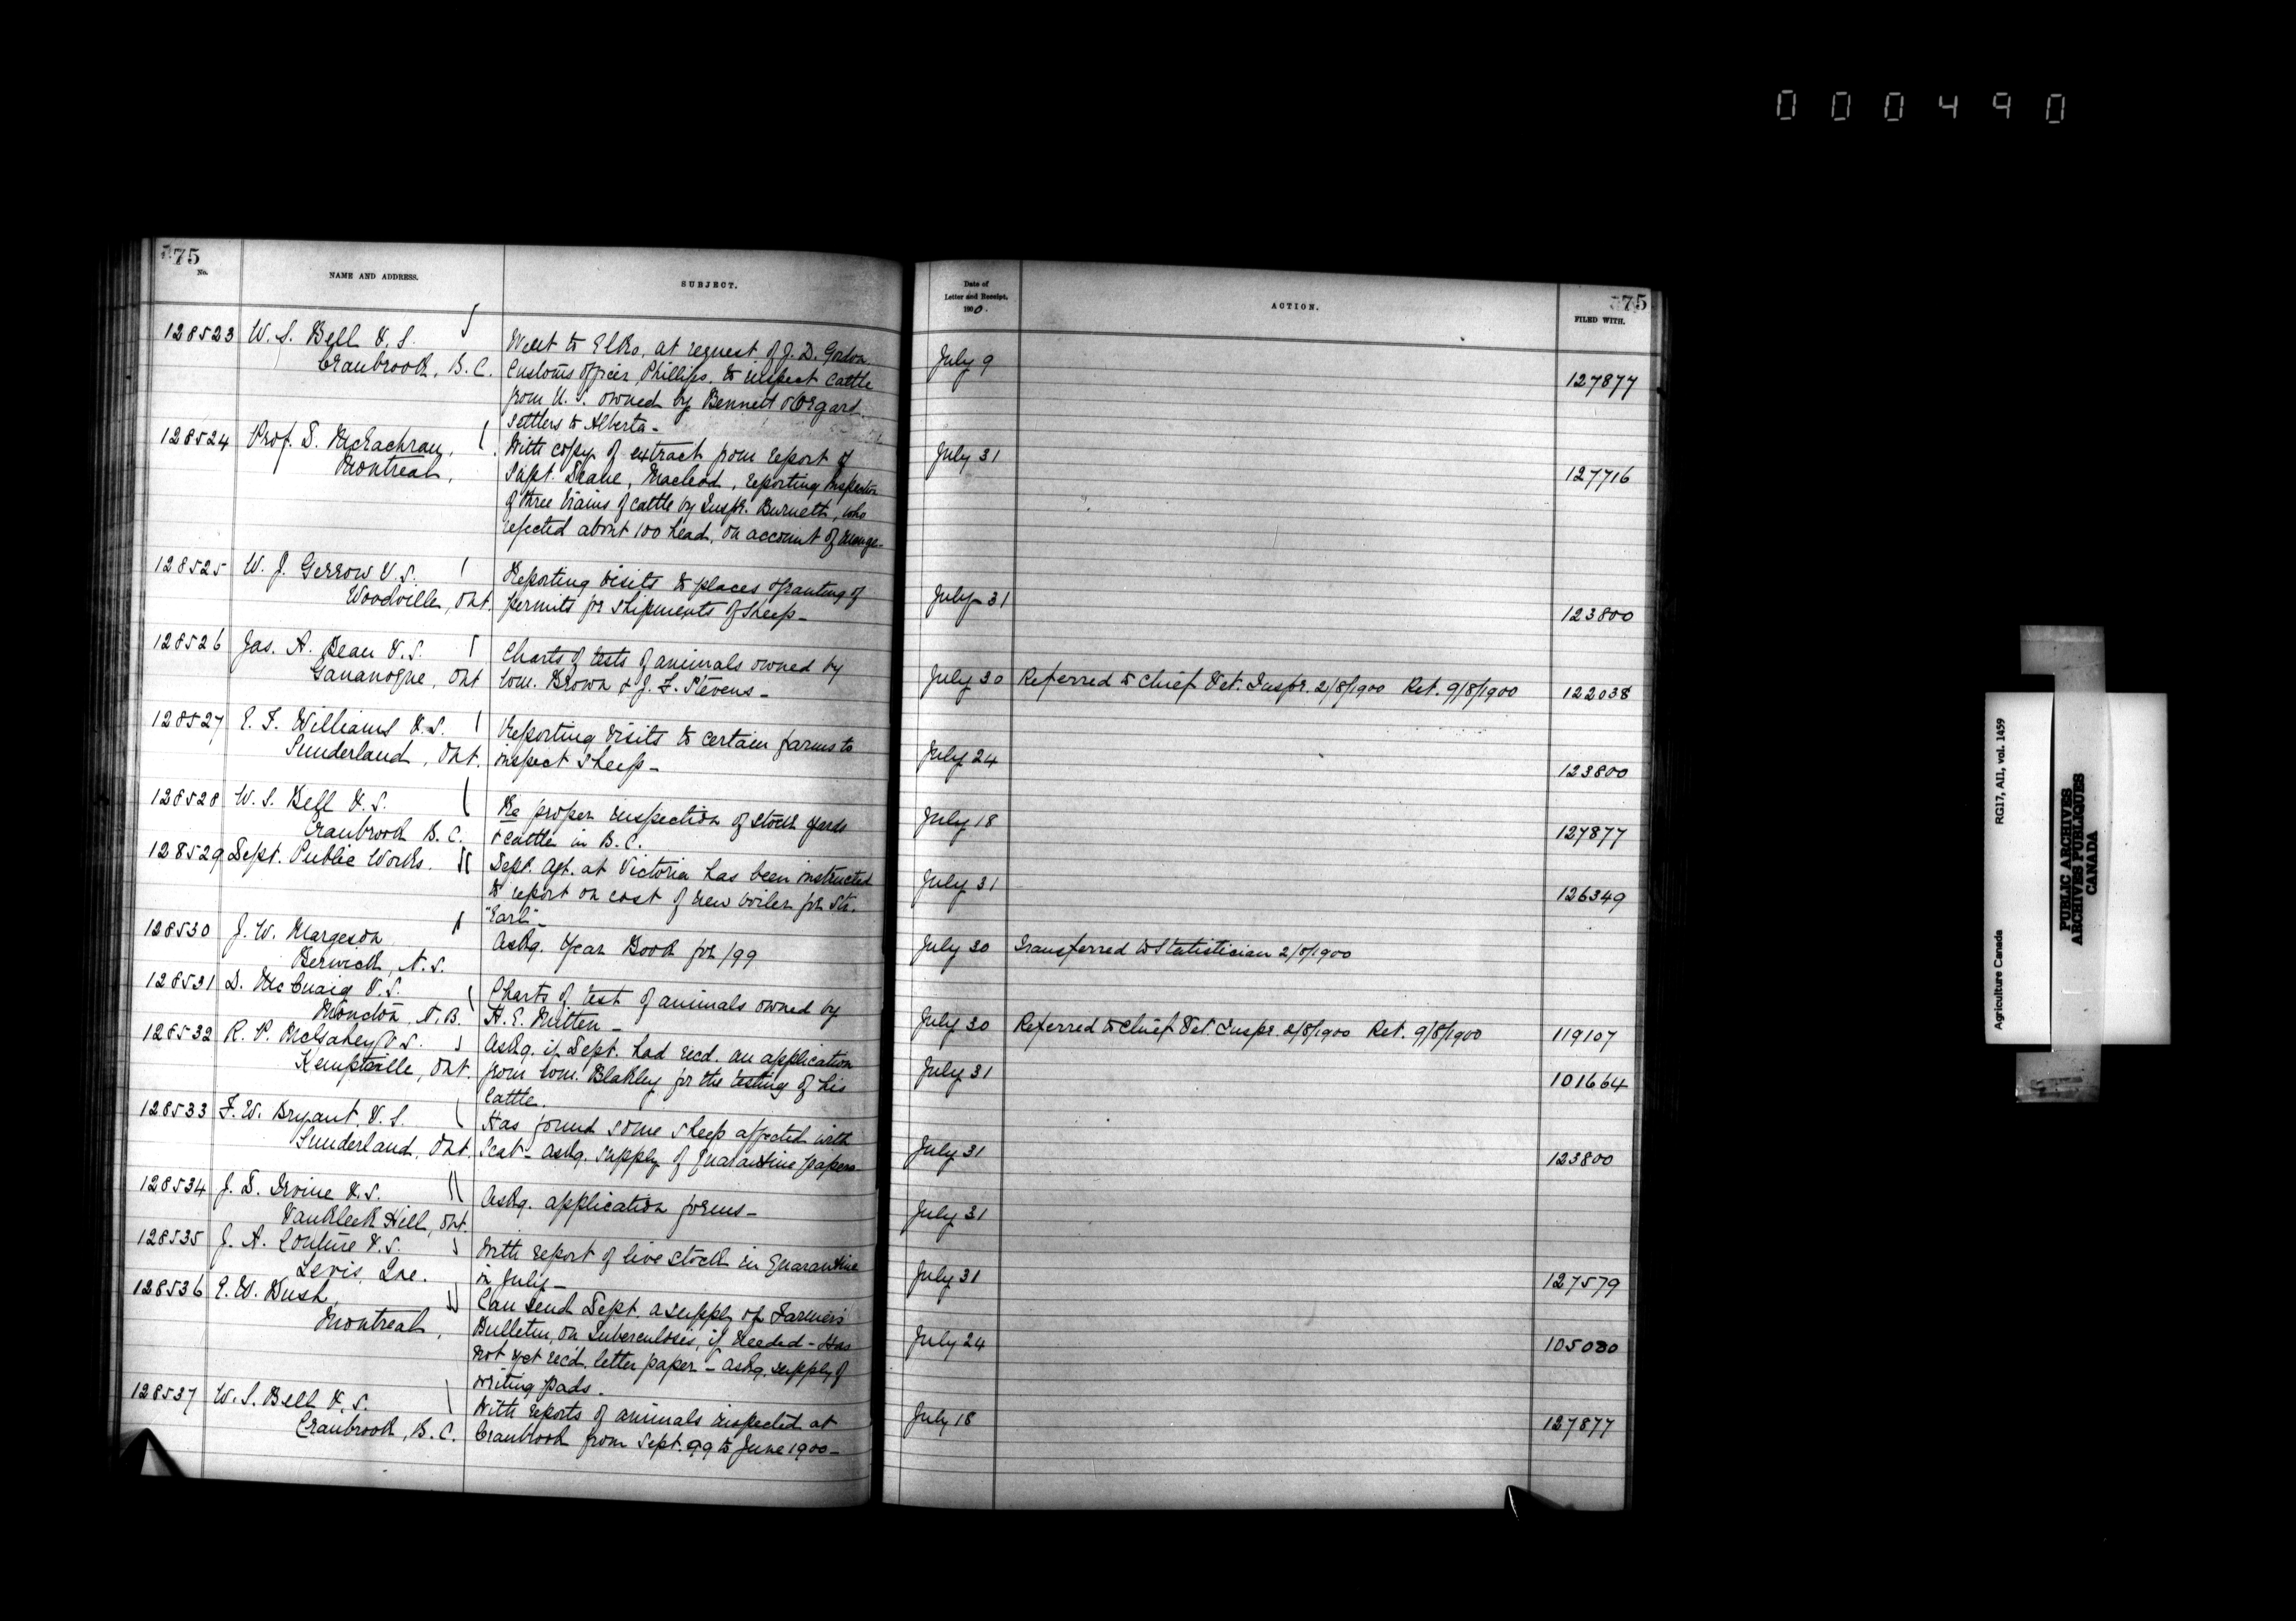 000490
75
No.
NAME AND ADDRESS.
SUBJECT.
128523 W. S. Bell V. S.
Cranbrook, B. C.
Went to Elko, at request of J. D. Gordon
Customs officer, Phillips, to inspect cattle
from U. S. owned by Bennett &
settlers to Alberta -
128524 Prof. D. McEachran,
Montreal,
With copy of extract from report of
Supt. Deane, Macleod, reporting inspection
of three trains of cattle by Inspr. Burnett, who
rejected about 100 head, on account of mange -
128525 W. J. Gerrow V. S.
Woodville, Ont.
Reporting visits to places & granting of
permits for shipments of sheep -
128526 Jas. A. Dean V. S.
Gananoque, Ont
Charts of tests of animals owned by
Wm. Brown & J. F. Stevens -
128527 E. F. Williams V. S.
Sunderland, Ont.
Reporting visits to certain farms to
inspect sheep -
128528 W. S. Bell V. S.
Cranbrook B. C.
Re proper inspection of stock yards
& cattle in B. C.
128529 Dept. Public Works.
Dept. Agt. at Victoria has been instructed
to report on cost of new boiler for Str.
"Earl" -
128530 J. W. Margeson
Berwick, N. S.
Askg. Year Book for /99
128531 D. McCuaig V. S.
Moncton, N. B.
Charts of test of animals owned by
H. E. Mitten -
128532 R. P. McGahey V. S.
Kemptville, Ont.
Askg. if Dept. had recd. an application
from Wm. Blakley for the testing of his
cattle.
128533 F. W. Bryant, V. S.
Sunderland, Ont.
Has found some sheep affected with
Scab - askg. supply of quarantine papers
128534 J. D. Irvine V. S.
Vankleek Hill, Ont.
Askg. application forms -
128535 J. A. Couture V. S.
Levis, Que.
With report of live stock in Quarantine
in July -
128536 E. W. Bush,
Montreal,
Can send Dept. a supply of Farmers'
Bulletin, on Tuberculosis, if needed - Has
not yet rec'd. letter paper - askg. supply of
writing pads.
128537 W. S. Bell V. S.
Cranbrook, B. C.
With reports of animals inspected at
Cranbrook from Sept. 99 to June 1900 -
Date of
Letter and Receipt.
1900.
ACTION.
75
FILED WITH.
July 9 127877
July 31 127716
July 31 123800
July 30 Referred to Chief Vet. Inspr. 2/8/1900 Ret. 9/8/1900 122038
July 24 123800
July 18 127877
July 31 126349
July 30 Transferred to Statistician 2/8/1900
July 30 Referred to Chief Vet. Inspr. 2/8/1900 Ret. 9/8/1900 119107
July 31 101664
July 31 123800
July 31
July 31 127579
July 24 105030
July 18 127877
Agriculture Canada RG17, AII, vol. 1459
PUBLIC ARCHIVES
ARCHIVES PUBLIQUES
CANADA